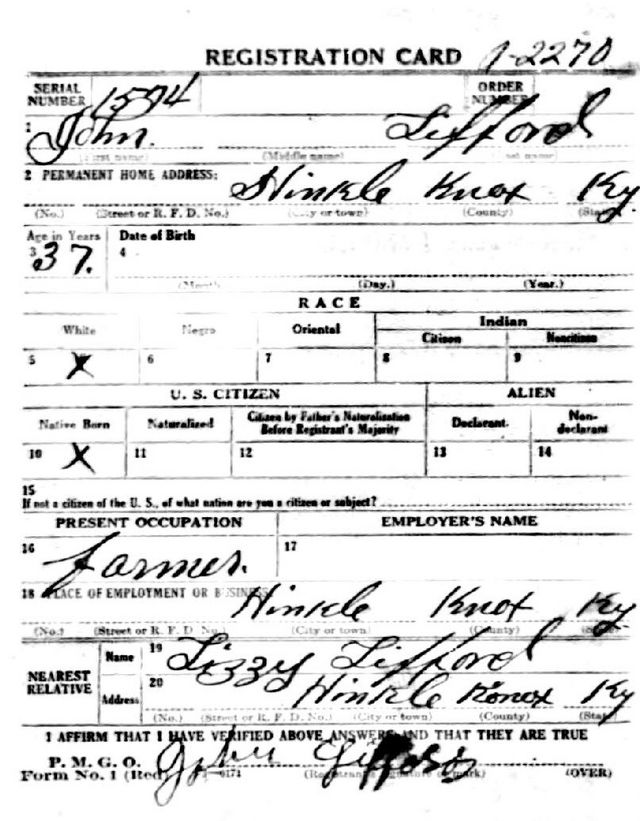 REGISTRATION CARD 1-2270
SERIAL NUMBER 1594 ORDER NUMBER
1 John. Lifford
(First name) (Middle name)
2 PERMANENT HOME ADDRESS: Hinkle Knox Ky
(No.) (Street or R. F. D. No.) (City or town) (County) (State)
Age in Years Date of Birth
3 37. 4
(Month) (Day.) (Year.)
RACE
White Negro Oriental Indian
Citizen Noncitizen
5 X 6 7 8 9
U. S. CITIZEN ALIEN
Native Born Naturalized Citizen by Father's Naturalization Before Registrant's Majority Declarant. Non-declarant
10 X 11 12 13 14
15
If not a citizen of the U. S., of what nation are you a citizen or subject?
PRESENT OCCUPATION EMPLOYER'S NAME
16 farmer. 17
18 PLACE OF EMPLOYMENT OR BUSINESS Hinkle Knox Ky
(No.) (Street or R. F. D. No.) (City or town) (County) (State)
NEAREST RELATIVE Name 19 Lizzy Lifford
Address 20 Hinkle Knox Ky
(No.) (Street or R. F. D. No.) (City or town) (County) (State)
I AFFIRM THAT I HAVE VERIFIED ABOVE ANSWERS AND THAT THEY ARE TRUE
P. M. G. O.
Form No. 1 (Red) John (Registrant's signature or mark) (OVER)